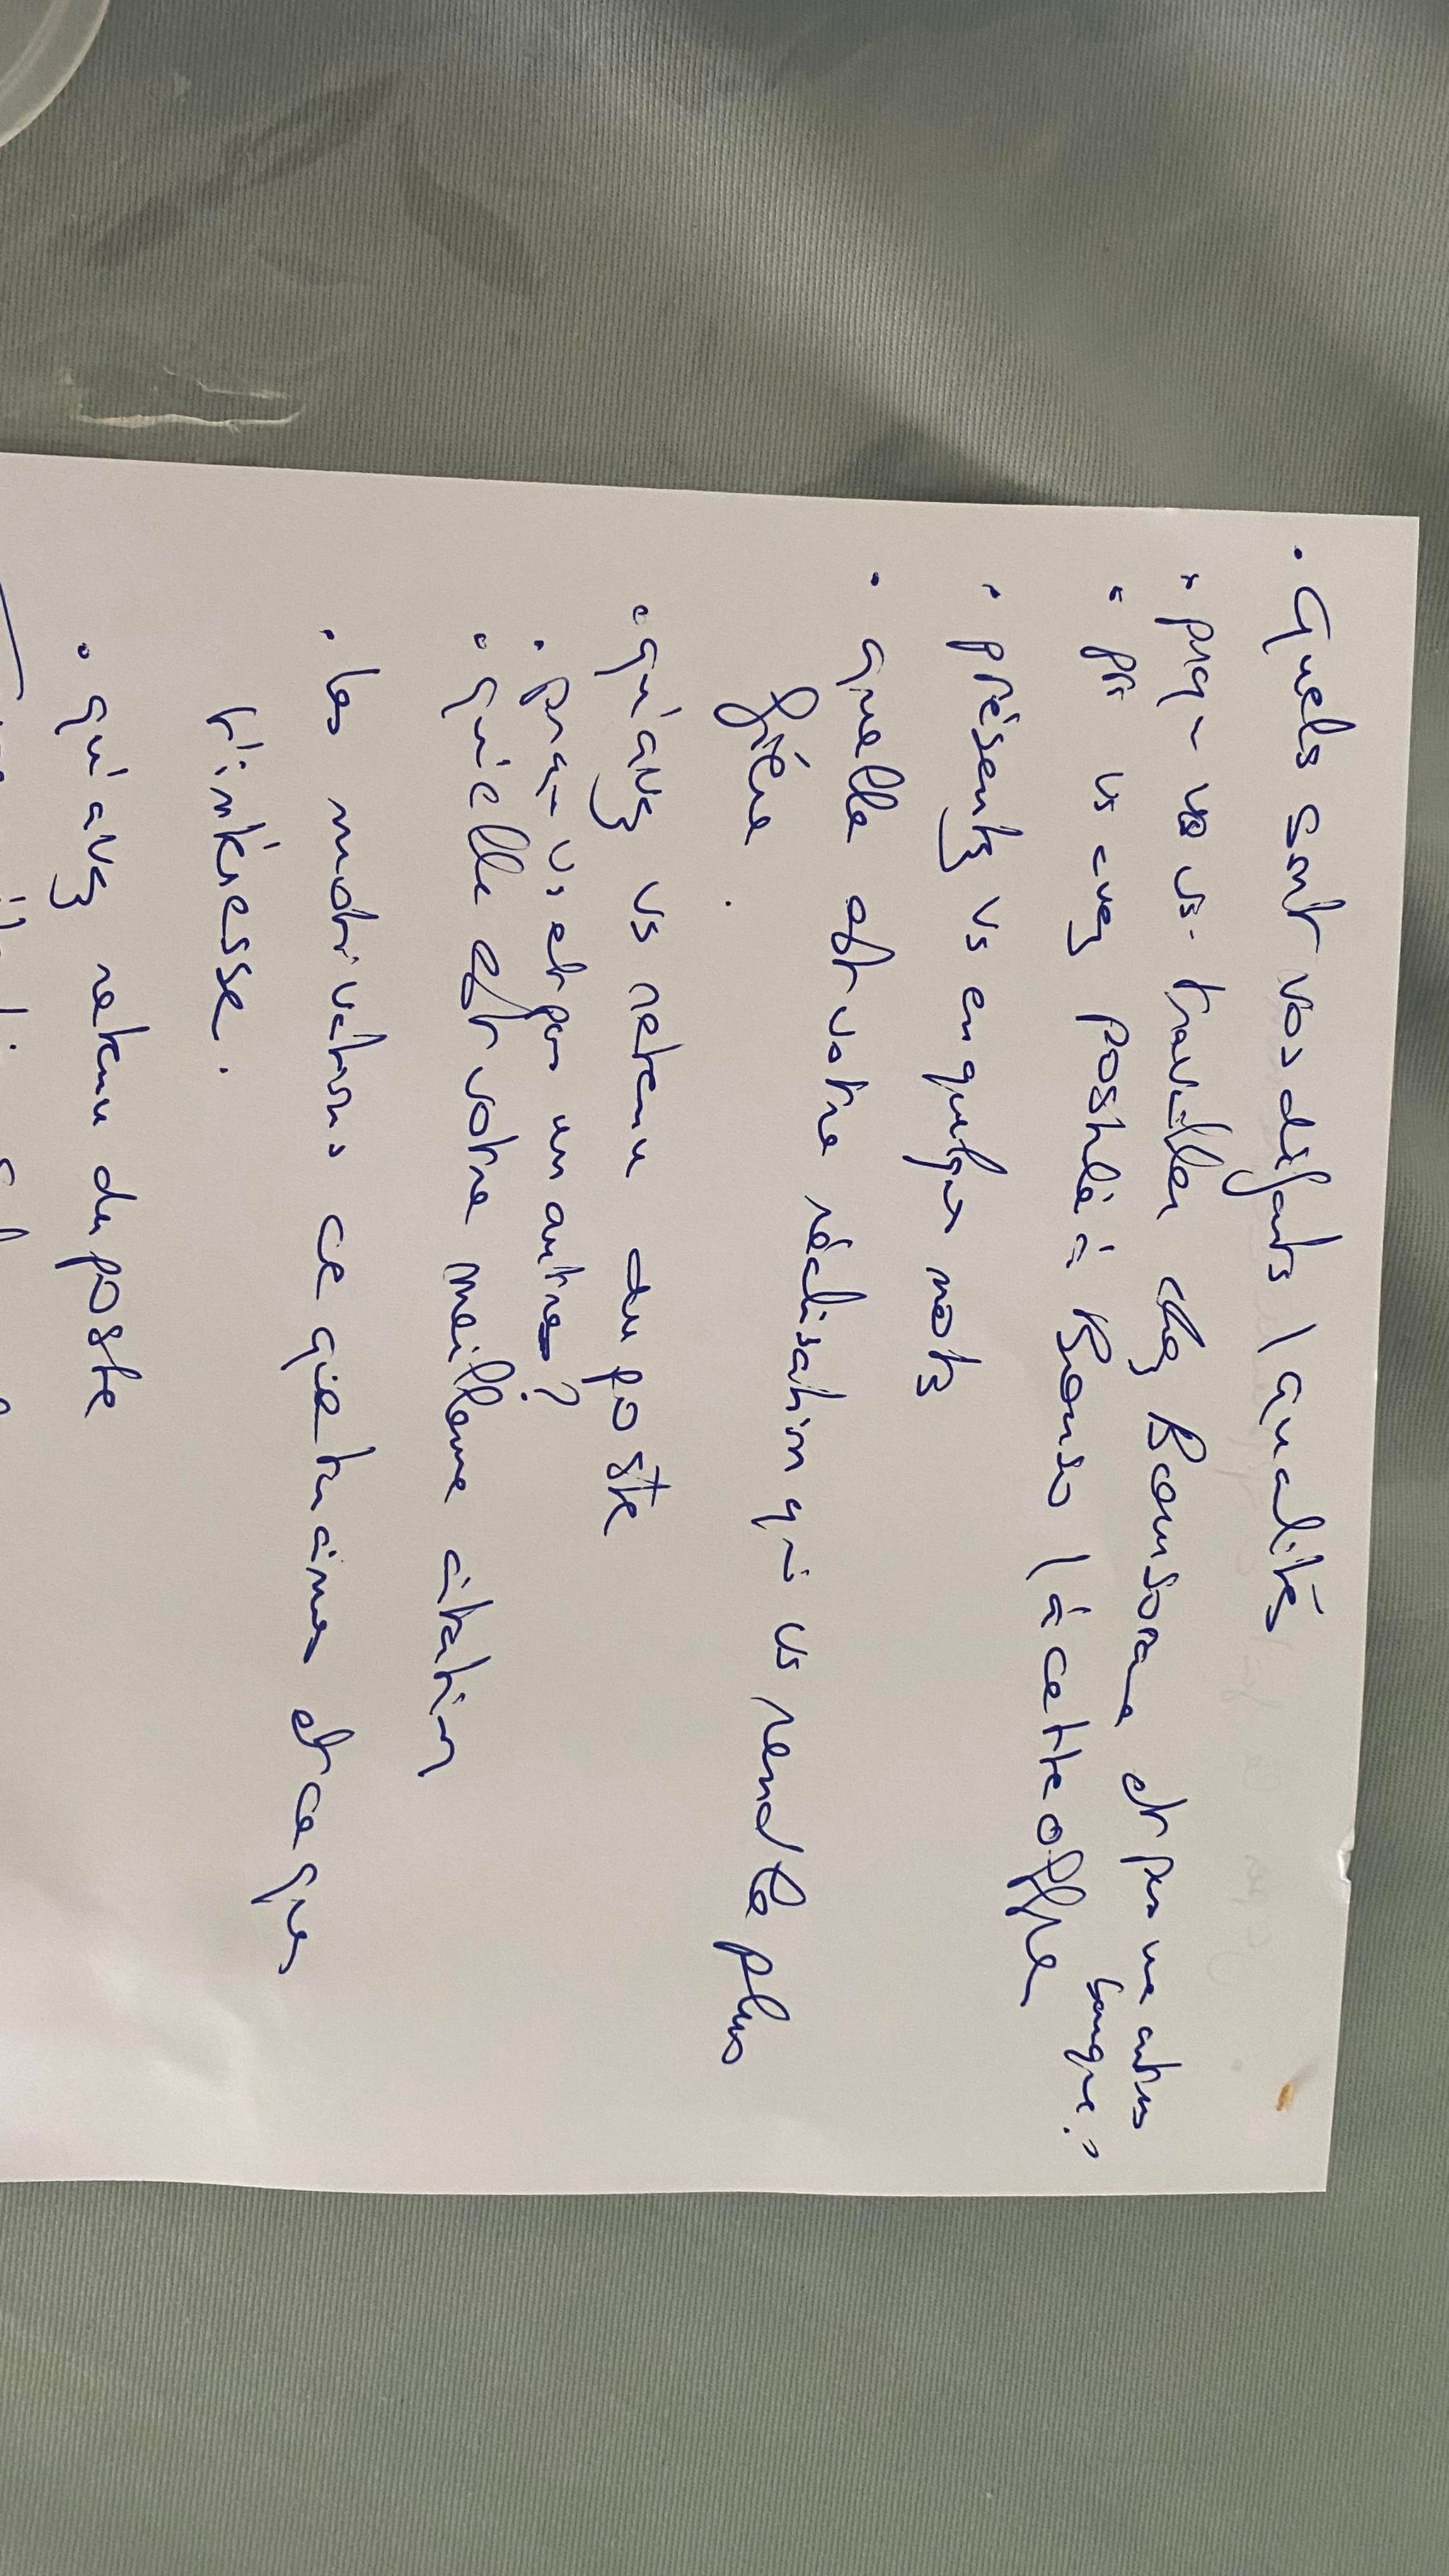 . Quels sont vos défauts / qualités
. prq- vs travailler chez Boursorama et pas une autres
banque ?
. pk vs avez postulé à Bourso / à cette offre
. présentez vs en quelques mots
. quelle est votre réalisation qui vs rend le plus
fière .
. qu'avez vs retenu du poste
. prq- vs et pas un autres ?
. qu'elle est votre meilleure citation
. les motivations ce que tu aimes et ce ques
t'intéresse .
. qu'avez retenu du poste